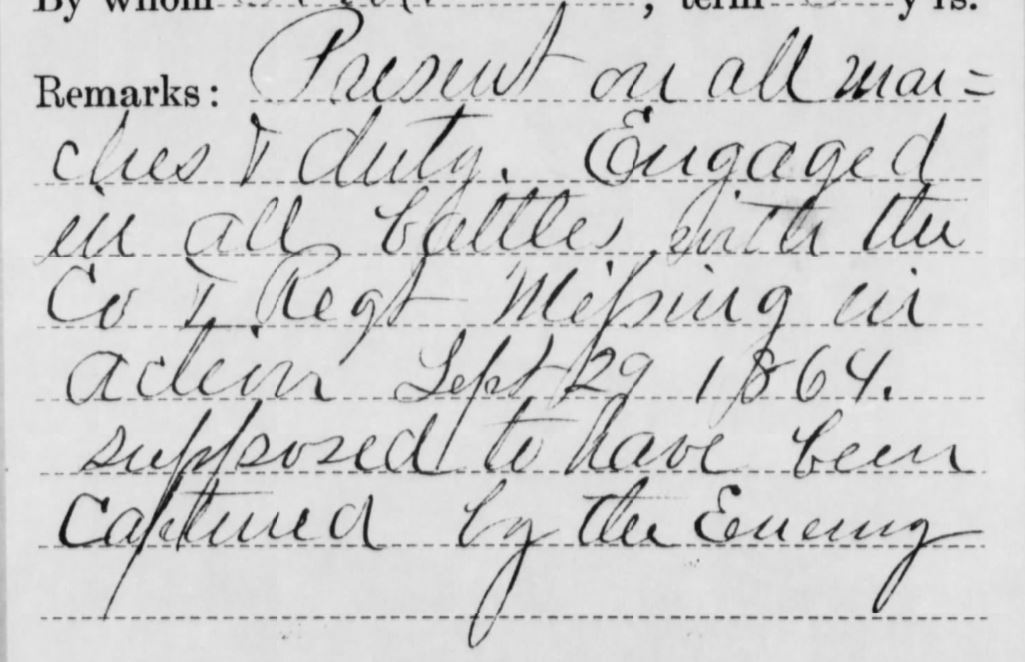 By whom , term yrs.
Remarks: Present on all mar=
ches & duty. Engaged
in all battles with the
Co & Regt Missing in
action Sept 29 1864.
supposed to have been
Captured by the Enemy